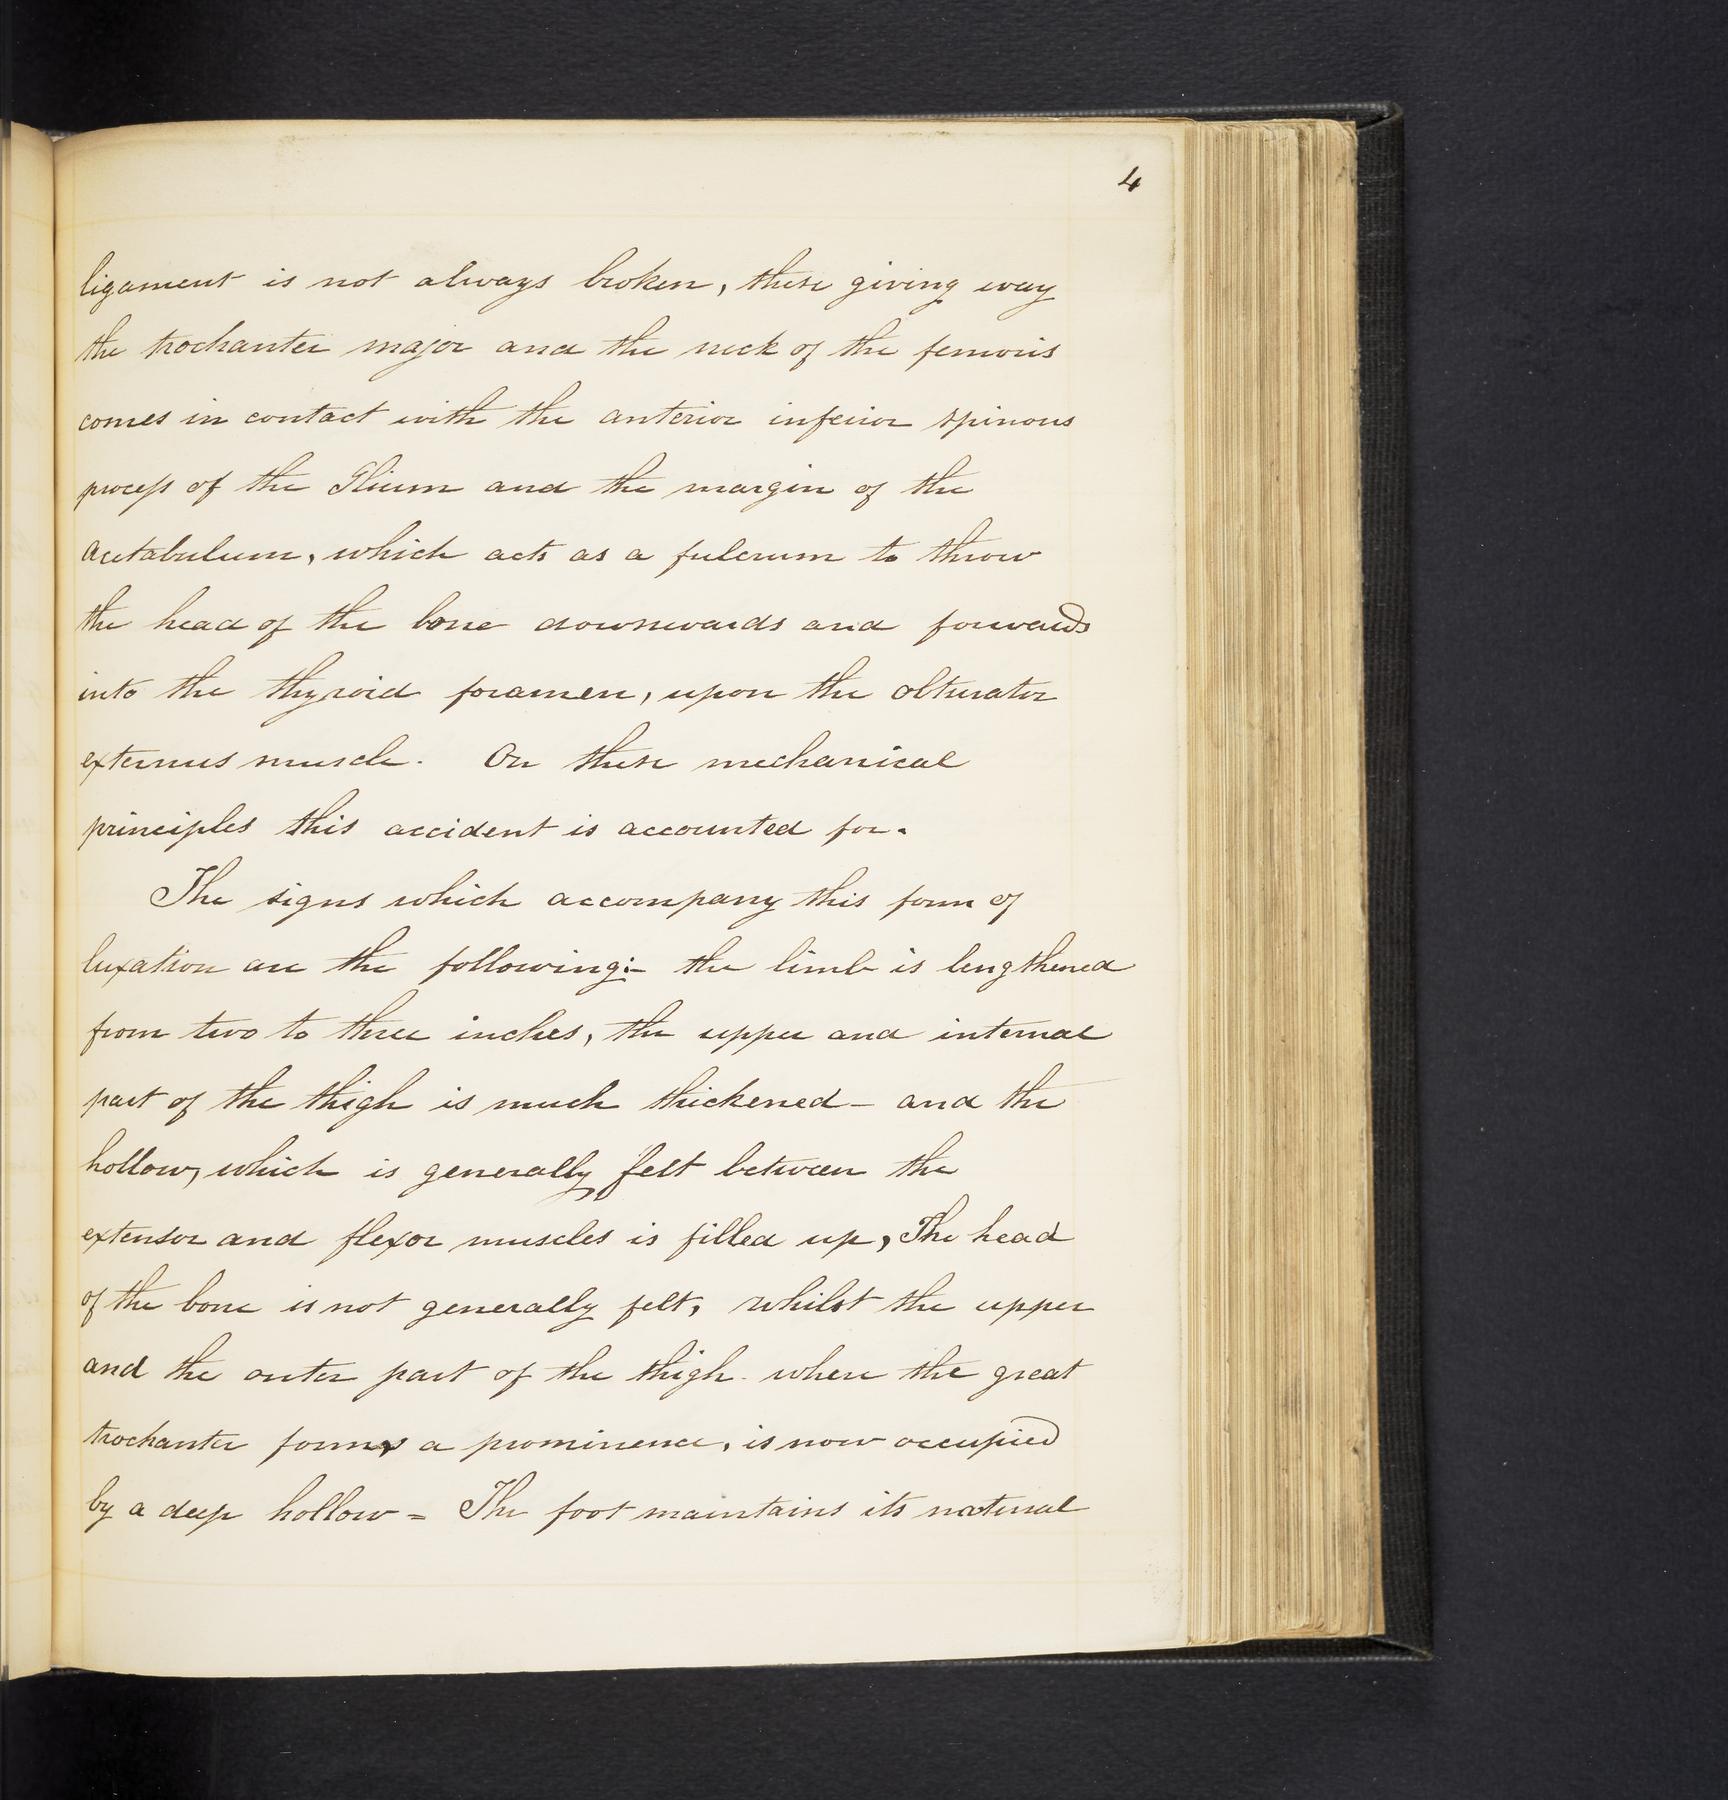 4
ligament is not always broken, these giving way
the trochanter major and the neck of the femoris
comes in contact with the anterior inferior spinous
process of the Ilium and the margin of the
acetabulum, which acts as a fulcrum to throw
the head of the bone downwards and forwards
into the thyroid foramen, upon the obturator
externus muscle. On these mechanical
principles this accident is accounted for.
The signs which accompany this form of
luxation are the following:- the limb is lengthened
from two to three inches, the upper and internal
part of the thigh is much thickened - and the
hollow, which is generally felt between the
extensor and flexor muscles is filled up, The head
of the bone is not generally felt, whilst the upper
and the outer part of the thigh - where the great
trochanter forms a prominence, is now occupied
by a deep hollow = The foot maintains its natural